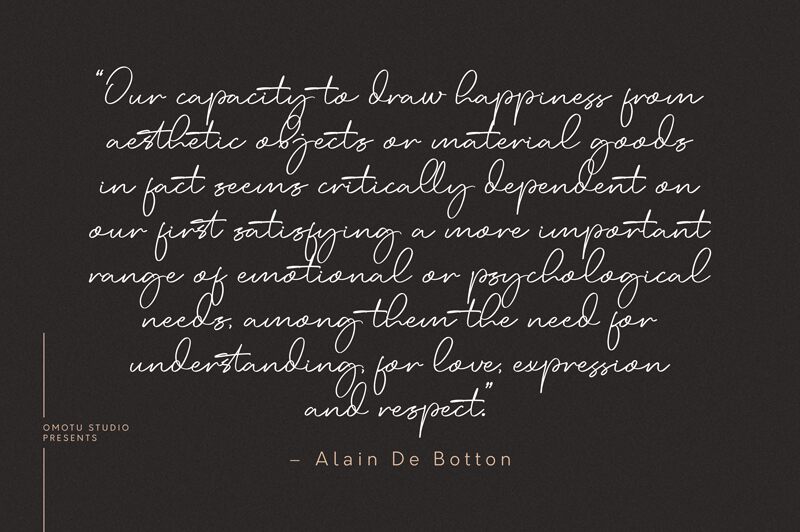 “Our capacity to draw happiness from
aesthetic objects or material goods
in fact seems critically dependent on
our first satisfying a more important
range of emotional or psychological
needs, among them the need for
understanding, for love, expression
and respect.”
– Alain De Botton
OMOTU STUDIO
PRESENTS